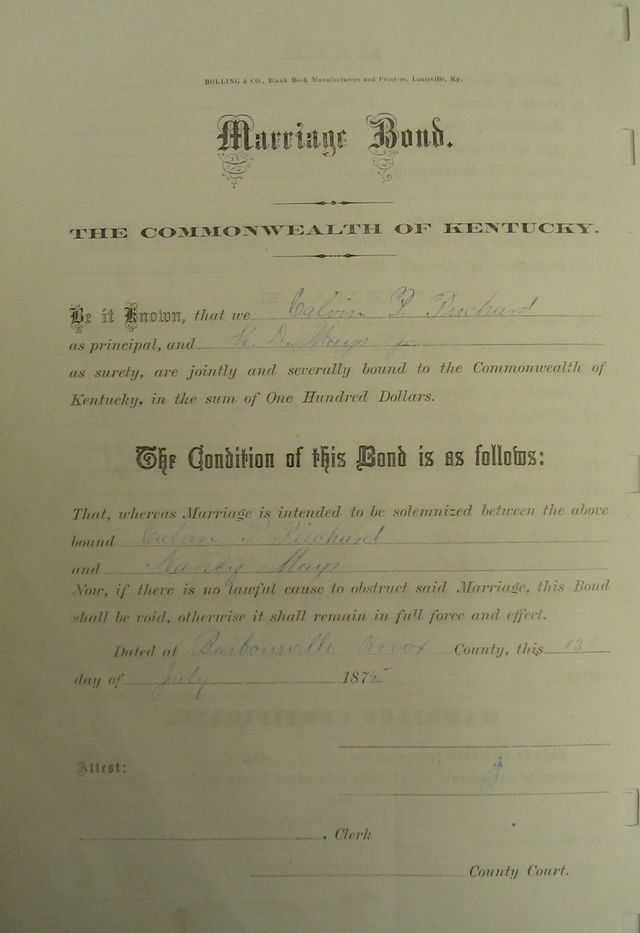 BOLLING & CO., Blank Book Manufacturers and Printers, Louisville, Ky.
Marriage Bond.
THE COMMONWEALTH OF KENTUCKY.
Be it Known, that we Calvin P
as principal, and Mays jr
as surety, are jointly and severally bound to the Commonwealth of
Kentucky, in the sum of One Hundred Dollars.
The Condition of this Bond is as follows:
That, whereas Marriage is intended to be solemnized between the above
bound Calvin P
and Nancy Mays
Now, if there is no lawful cause to obstruct said Marriage, this Bond
shall be void, otherwise it shall remain in full force and effect.
Dated at Barbonsville Knox County, this 13
day of July 1875
Attest:
, Clerk
County Court.